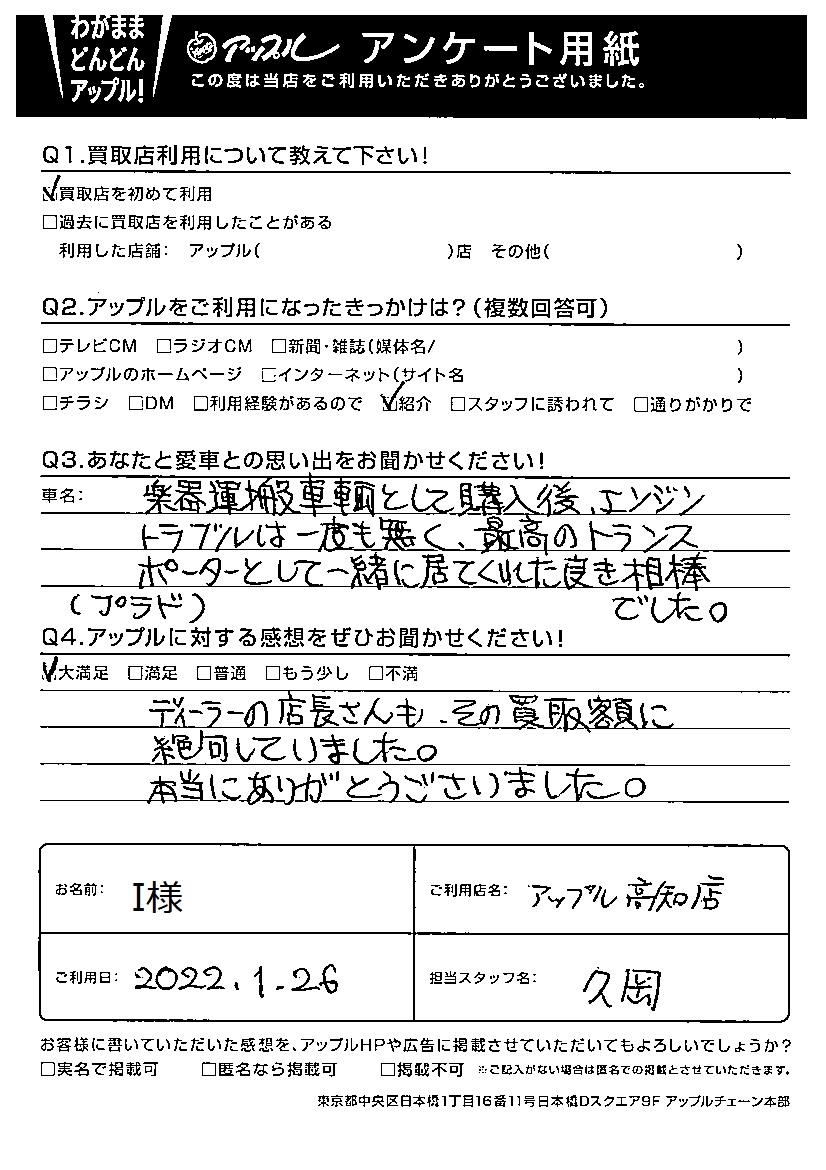 わがまま
どんどん
アップル!
アップル アンケート用紙
この度は当店をご利用いただきありがとうございました。
Q1.買取店利用について教えて下さい!
☑買取店を初めて利用
□過去に買取店を利用したことがある
利用した店舗: アップル( )店 その他( )
Q2.アップルをご利用になったきっかけは?(複数回答可)
□テレビCM □ラジオCM □新聞・雑誌(媒体名/ )
□アップルのホームページ □インターネット(サイト名 )
□チラシ □DM □利用経験があるので ☑紹介 □スタッフに誘われて □通りがかりで
Q3.あなたと愛車との思い出をお聞かせください!
車名: 楽器運搬車輌として購入後、エンジン
トラブルは一度も無く、最高のトランス
ポーターとして一緒に居てくれた良き相棒
(プラド) でした。
Q4.アップルに対する感想をぜひお聞かせください!
☑大満足 □満足 □普通 □もう少し □不満
ディーラーの店長さんも、その買取額に
絶句していました。
本当にありがとうございました。
お名前: I様 ご利用店名: アップル高知店
ご利用日: 2022.1.26 担当スタッフ名: 久岡
お客様に書いていただいた感想を、アップルHPや広告に掲載させていただいてもよろしいでしょうか?
□実名で掲載可 □匿名なら掲載可 □掲載不可 ※ご記入がない場合は匿名での掲載とさせていただきます。
東京都中央区日本橋1丁目16番11号日本橋Dスクエア9F アップルチェーン本部